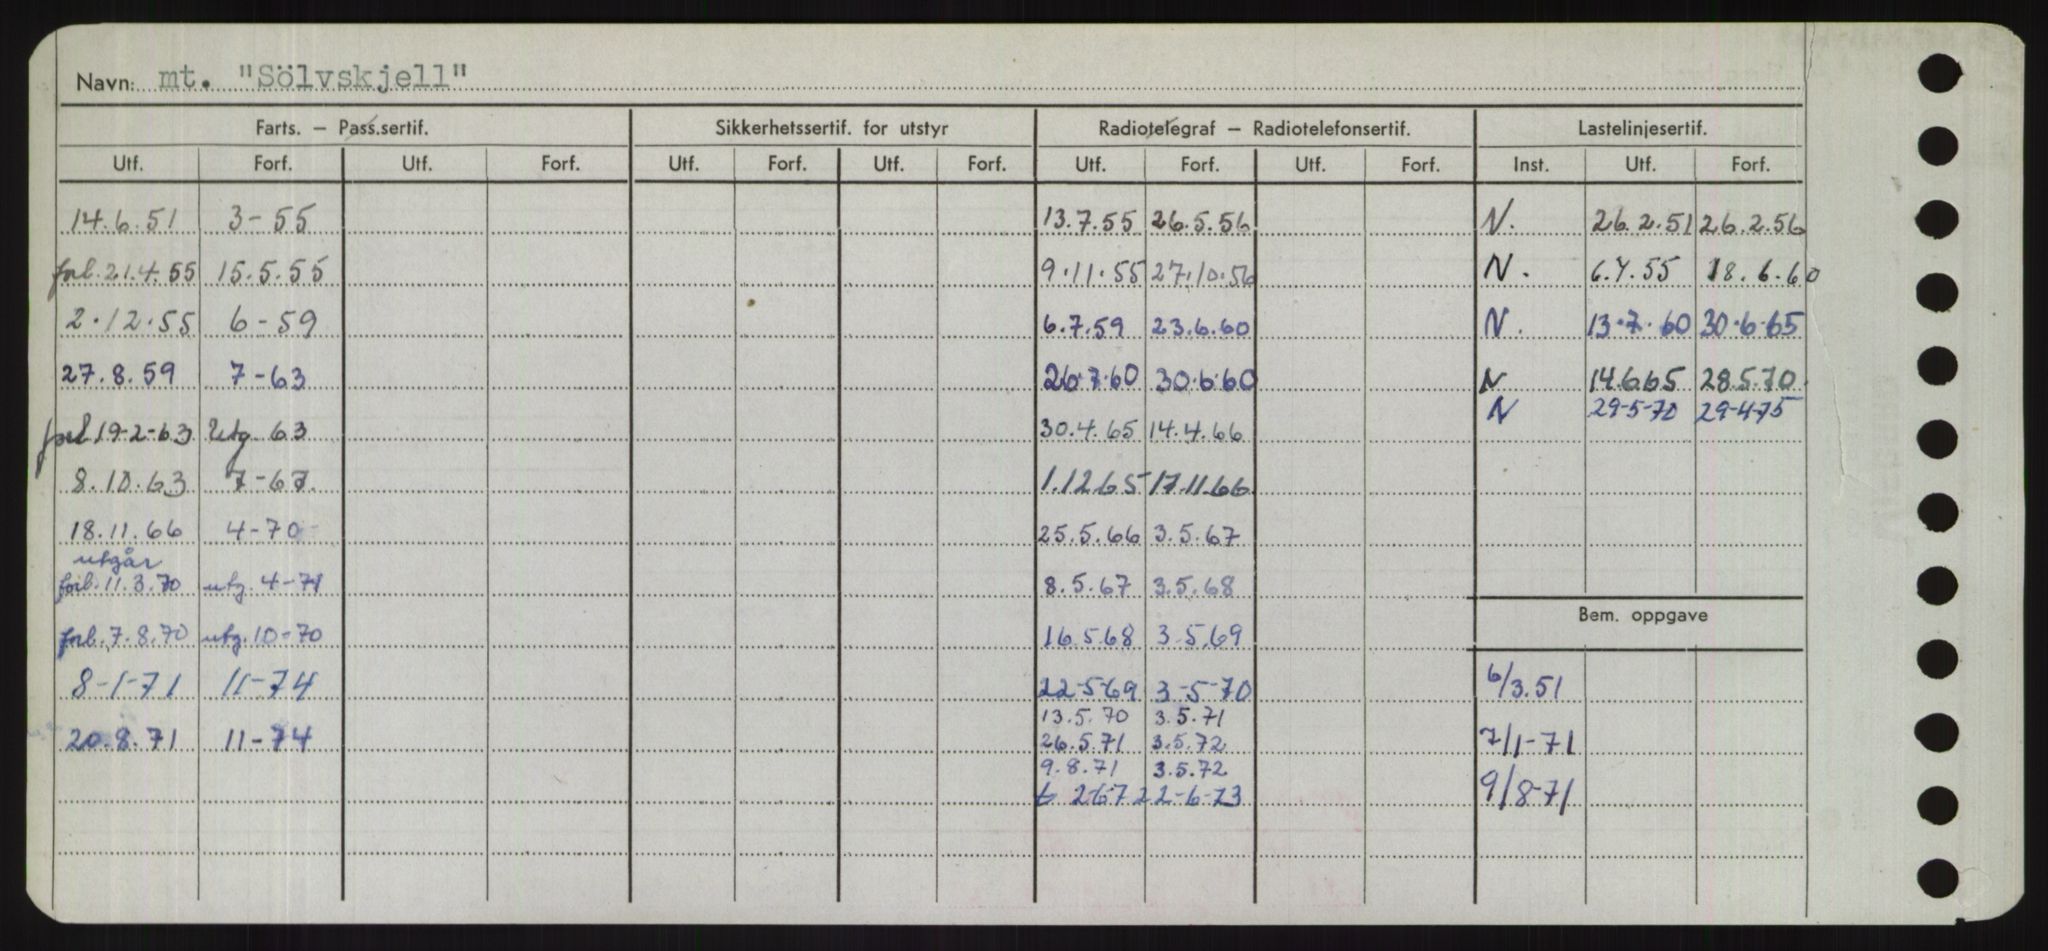 Navn: mt. "Sölvskjell"
Farts. – Pass.sertif. Sikkerhetssertif. for utstyr Radiotelegraf – Radiotelefonsertif. Lastelinjesertif.
Utf. Forf. Utf. Forf. Utf. Forf. Utf. Forf. Utf. Forf. Utf. Forf. Inst. Utf. Forf.
14.6.51 3-55 13.7.55 26.5.56 N. 26.2.51 26.2.56
forl. 21.4.55 15.5.55 9.11.55 27.10.56 N. 6.7.55 18.6.60
2.12.55 6-59 6.7.59 23.6.60 N. 13.7.60 30.6.65
27.8.59 7-63 26.7.60 30.6.60 N 14.6.65 28.5.70.
N 29-5-70 29-4-75
forl 19-2-63 Utg. 63 30.4.65 14.4.66
8.10.63 7-67. 1.12.65 17.11.66
18.11.66 4-70 25.5.66 3.5.67
utgår
forl. 11.3.70 utg. 4-71 8.5.67 3.5.68
Bem. oppgave
forl. 7.8.70 utg. 10-70 16.5.68 3.5.69
8-1-71 11-74 22-5-69 3-5-70 6/3.51
13.5.70 3.5.71
20.8.71 11-74 26.5.71 3.5.72 7/1-71
9.8.71 3.5.72
2-6-72 2-6-73 9/8-71